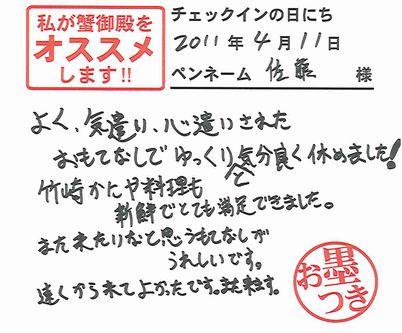 私が蟹御殿を
オススメ
します!!
チェックインの日にち
2011年4月11日
ペンネーム 佐藤 様
よく、気遣り、心遣いされた
おもてなしでゆっくりと気分良く休めました!
竹崎かにや料理も
新鮮でとても満足できました。
また来たいなと思うもてなしが
うれしいです。
遠くから来てよかったです。また来ます。
お墨つき